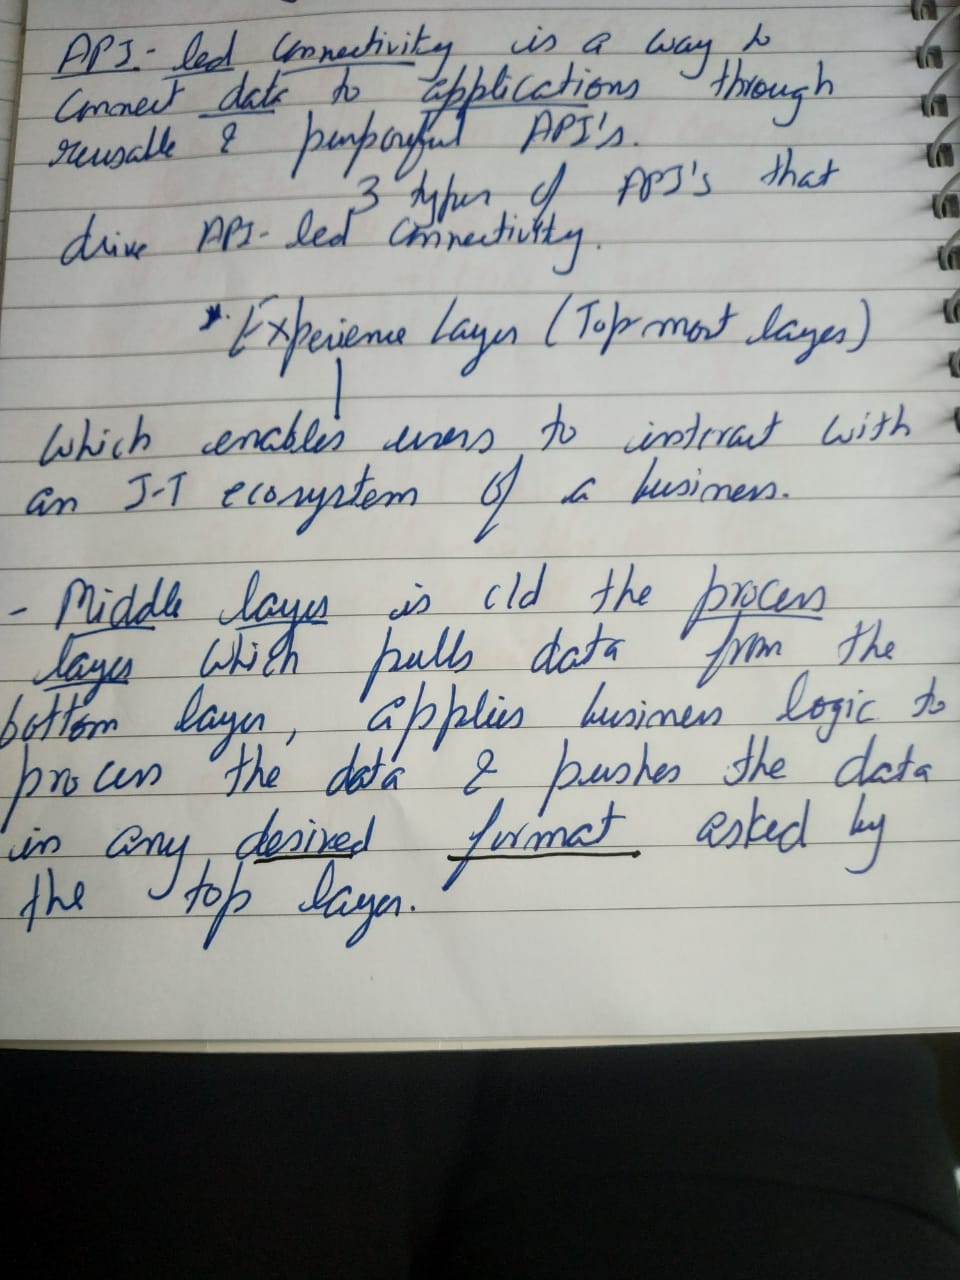 API-led Connectivity is a way to
Connect data to applications through
reusable & purposeful API's.
3 types of API's that
drive API-led Connectivity.
* Experience Layer (Top most layer)
Which enables users to interact with
an I-T ecosystem of a business.
- Middle layer is cld the process
layer which pulls data from the
bottom layer, applies business logic to
process the data & pushes the data
in any desired format asked by
the top layer.